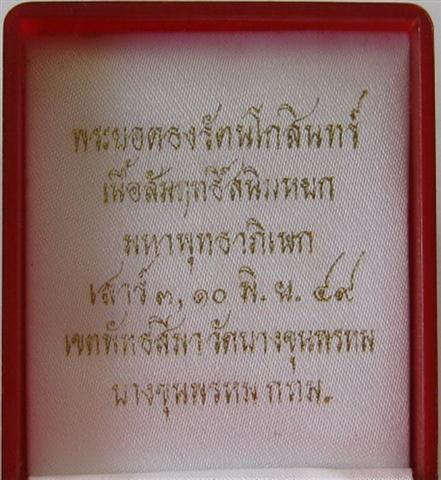 พระยอดธงรัตนโกสินทร์
เนื้อสัมฤทธิ์สนิมหยก
มหาพุทธาภิเษก
เสาร์ ๓, ๑๐ มิ. ย. ๔๙
เขตพัทธสีมา วัดบางขุนพรหม
บางขุนพรหม กทม.